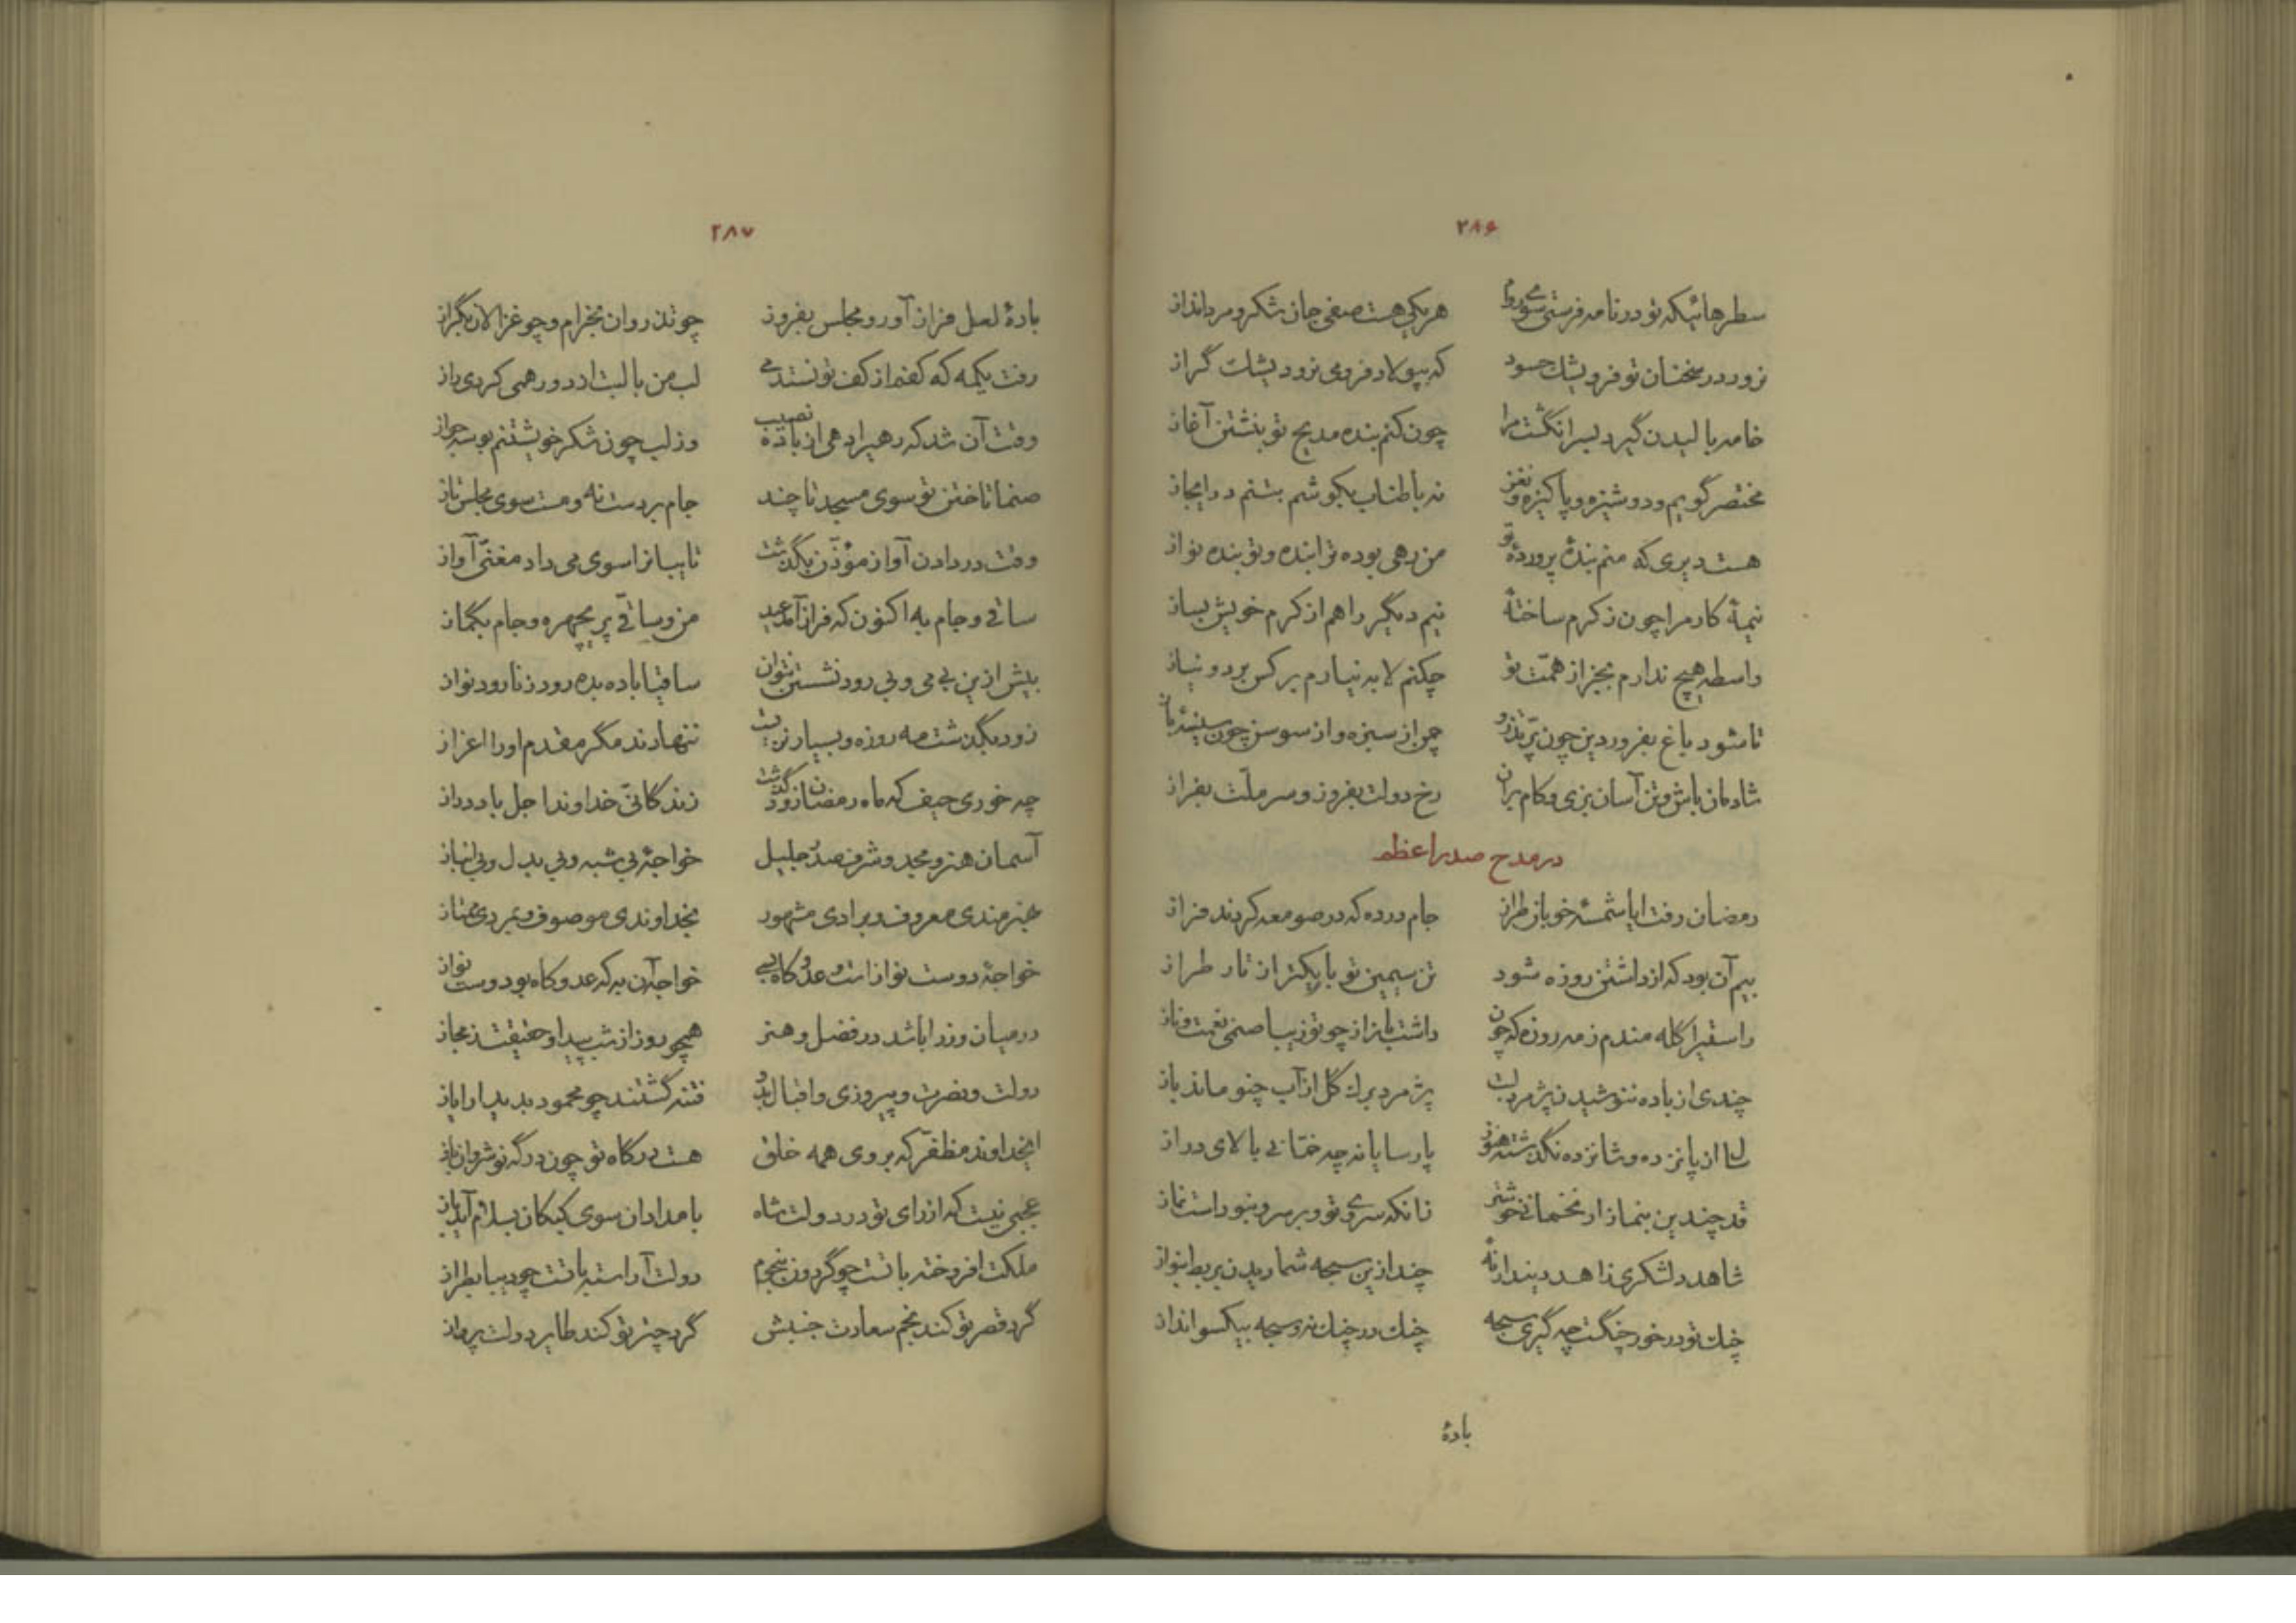 ۲۸۶
سطرهائیکه تو در نامه فرستی سوی روم هر یکی هست صفی جان شکر و مردانداز
نرود در سخنشان تو فرو یشک حسود که بپولاد فرو می نرود یشک گراز
خامه بالیدن گیرد بسر انگشت مرا چون کنم بنده مدیح تو بنشتن آغاز
مختصر گویم و دوشیزه و پاکیزه و نغز نه باطناب بکوشم بتنم در ایجاز
هست دیری که منم بندهٔ پروردهٔ تو من رهی بوده ترا بنده و تو بنده نواز
نیمهٔ کار مرا چون ز کرم ساختهٔ نیم دیگر را هم از کرم خویش بساز
واسطه هیچ ندارم بجز از همّت تو چکنم لابه نیارم بر کس برد و نیاز
تا شود باغ بفروردین چون پرّ تذرو چمن از سبزه و از سوسن چون سینهٔ باز
شادمان باش و تن آسان بزی و کام بران رخ دولت بفروز و سر ملّت بفراز
در مدح صدر اعظم
رمضان رفت ایا شمسهٔ خوبان طراز جام در ده که در صومعه کردند فراز
بیم آن بود که از داشتن روزه شود تن سیمین تو باریکتر از تار طراز
راستی را گله مندم ز مه روزه که چون داشت باز از چو تو زیبا صنمی نعمت و ناز
چندی از باده ننوشیدن پژمرد لبت پژمرد برگ گل از آب چنو ماند باز
سال از پانزده و شانزده نگذشته هنوز پارسایانه چه خمّانی بالای دراز
قد چندین بنماز ار نخمانی خوشتر زانکه سروی تو و بر سرو نبود است نماز
شاهد و لشکری زاهد و دیندار نهٔ چند ازین سبحه شماریدن بربط بنواز
چنگ تو در خور چنگست چه گیری سبحه چنگ در چنگ نه و سبحه بیکسو انداز
بادهٔ
۲۸۷
بادهٔ لعل فراز آور و مجلس بفروز چو تذروان بخرام و چو غزالان بگراز
رفت یکمه که کفم از کف تو نستد می لب من با لبت از دور همی کردی راز
وقت آن شد که رهیرا دهی از باده نصیب وز لب چون شکر خویشتنم بوسه جواز
صنما تاختن تو سوی مسجد تا چند جام بر دست نه و مست سوی مجلس تاز
وقت در دادن آواز مؤذّن بگذشت تا بیانرا سوی می داد مغنّی آواز
ساقی و جام به اکنون که فراز آمد عید من و ساقیّ پریچهره و جام بگماز
بیش ازین بی می و بی رود نشستن نتوان ساقیا باده بده رود زنا رود نواز
زود بگذشت مه روزه و بسیار نزیست ننهادند مگر مقدم او را اعزاز
چه خوری حیف که ماه رمضان زود گذشت زندگانیّ خداوند اجل باد دراز
آسمان هنر و مجد و شرف صدر جلیل خواجهٔ بی شبه و بی بدل و بی انباز
بهنرمندی معروف و برادی مشهور بخداوندی موصوف و بمردی ممتاز
خواجهٔ دوست نواز است و عدو کاه بسی خواجه آن به که عدو کاه بود دوست نواز
در میان وزرا باشد در فضل و هنر همچو روز از شب پیدا و حقیقت ز مجاز
دولت و نصرت و پیروزی و اقبال بدو فتنه گشتند چو محمود بدیدار ایاز
ایخداوند مظفّر که بروی همه خلق هست درگاه تو چون درگه نوشروان باز
عجبی نیست که از رای تو در دولت شاه بامدادان سوی کبکان بسلام آید باز
ملکت افروخته با تست چو گردون بنجوم دولت آراسته با تست چو دیبا بطراز
گرد قصر تو کند نجم سعادت جنبش گرد چتر تو کند طایر دولت پرواز